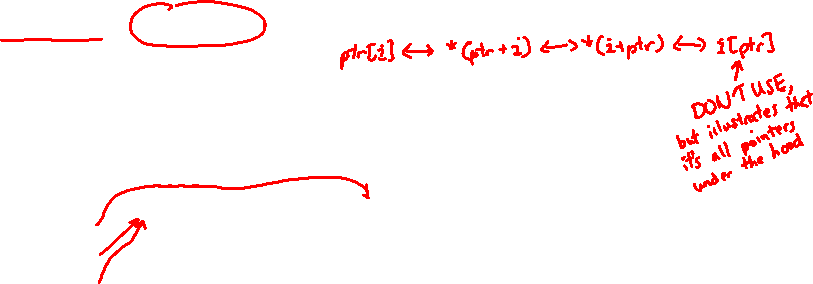 ptr[i] ↔ *(ptr + i) ↔ *(i+ptr) ↔ i[ptr]
DON'T USE,
but illustrates that
it's all pointers
under the hood